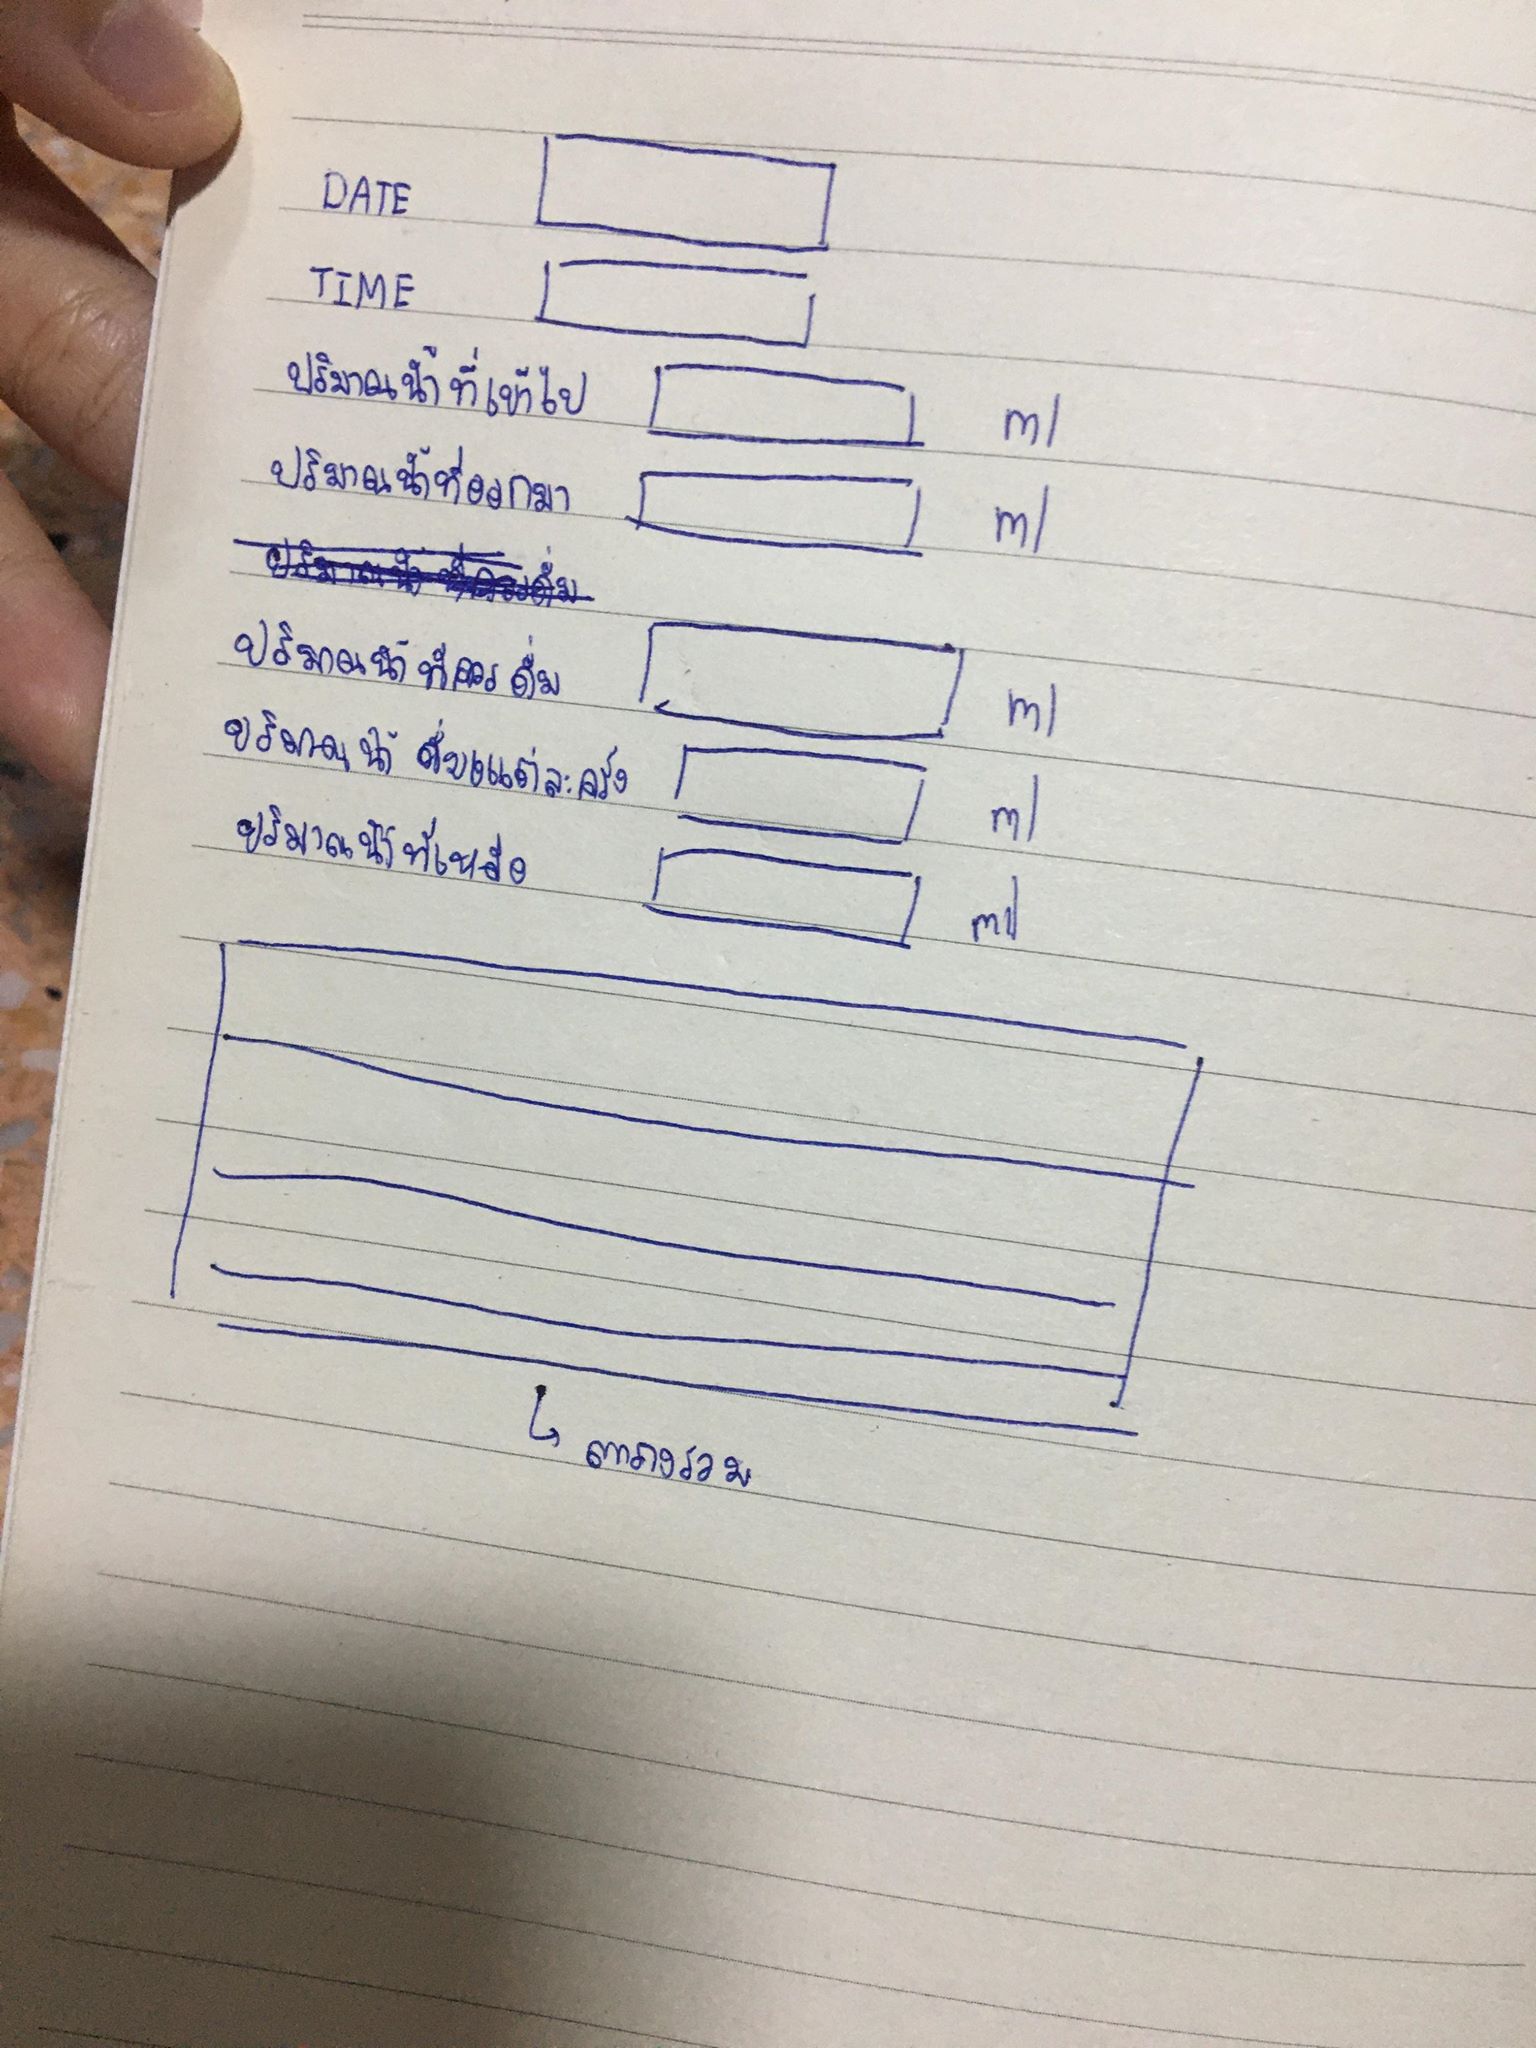 DATE
TIME
ปริมาณน้ำที่เข้าไป ml
ปริมาณน้ำที่ออกมา ml
ปริมาณน้ำ ที่ควรดื่ม
ปริมาณน้ำที่ควรดื่ม ml
ปริมาณน้ำ ดื่มแต่ละครั้ง ml
ปริมาณน้ำที่เหลือ ml
ตารางรวม